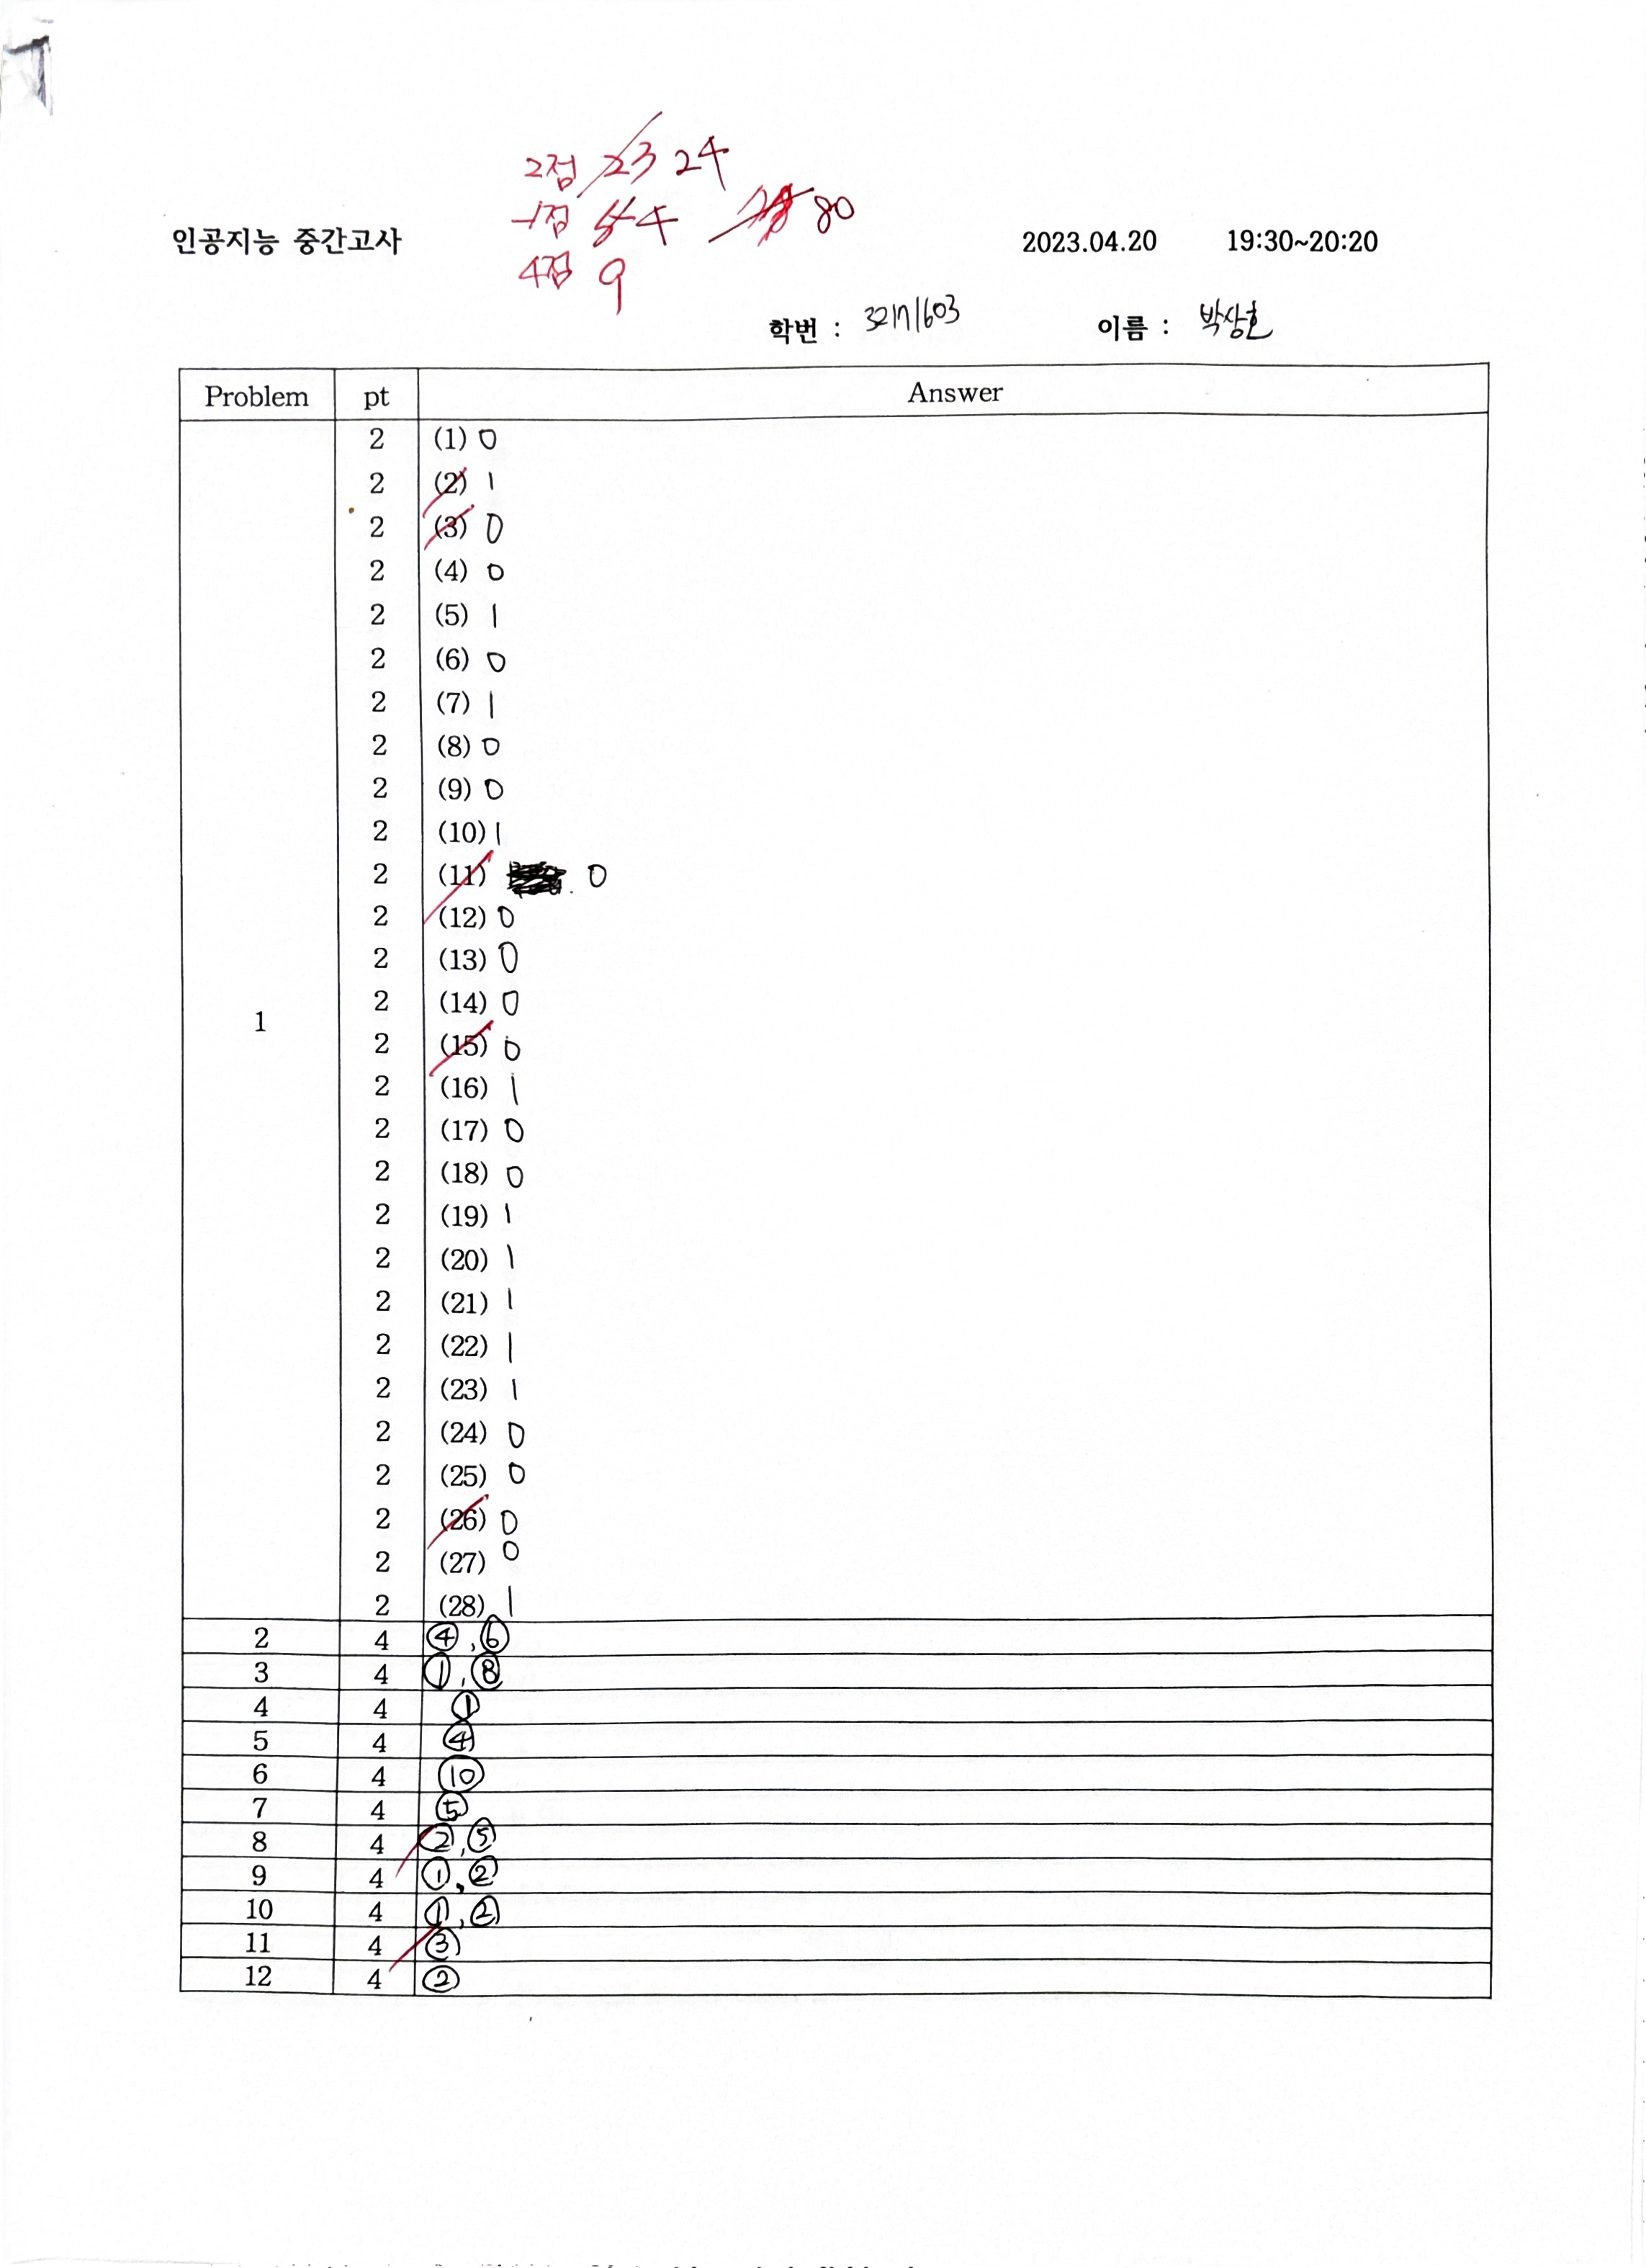 2점 23 24
-1점 5 4 80
4점 9
인공지능 중간고사 2023.04.20 19:30~20:20
학번 : 32171603 이름 : 박상호
Problem pt Answer
1
2 (1) 0
2 (2) 1
2 (3) 0
2 (4) 0
2 (5) 1
2 (6) 0
2 (7) 1
2 (8) 0
2 (9) 0
2 (10) 1
2 (11) 0
2 (12) 0
2 (13) 0
2 (14) 0
2 (15) 0
2 (16) 1
2 (17) 0
2 (18) 0
2 (19) 1
2 (20) 1
2 (21) 1
2 (22) 1
2 (23) 1
2 (24) 0
2 (25) 0
2 (26) 0
2 (27) 0
2 (28) 1
2 4 ④, ⑥
3 4 ①, ⑧
4 4 ①
5 4 ④
6 4 ⑩
7 4 ⑤
8 4 ②, ⑤
9 4 ①, ②
10 4 ①, ②
11 4 ③
12 4 ②